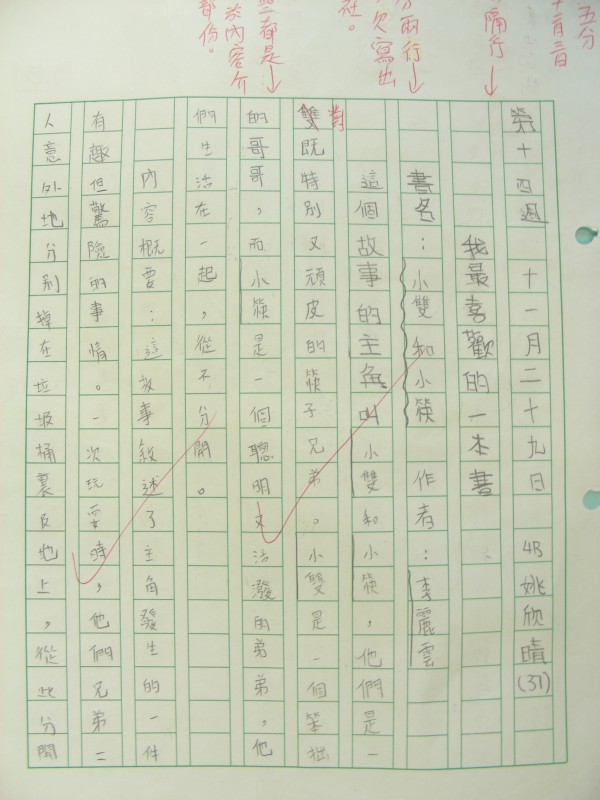 五分
十二月三日
隔行
分兩行
欠寫出
社。
都是
於內容介
部份。
第十四週 十一月二十九日 4B 姚欣晴(31)
我最喜歡的一本書
書名：小雙和小筷 作者：李麗雲
這個故事的主角叫小雙和小筷，他們是一
雙對既特別又頑皮的筷子兄弟。小雙是一個笨拙
的哥哥，而小筷是一個聰明又活潑的弟弟，他
們生活在一起，從不分開。
內容概要：這故事敘述了主角發生的一件
有趣但驚險的事情。一次玩耍時，他們兄弟二
人意外地分別掉在垃圾桶裏及地上，從此分開